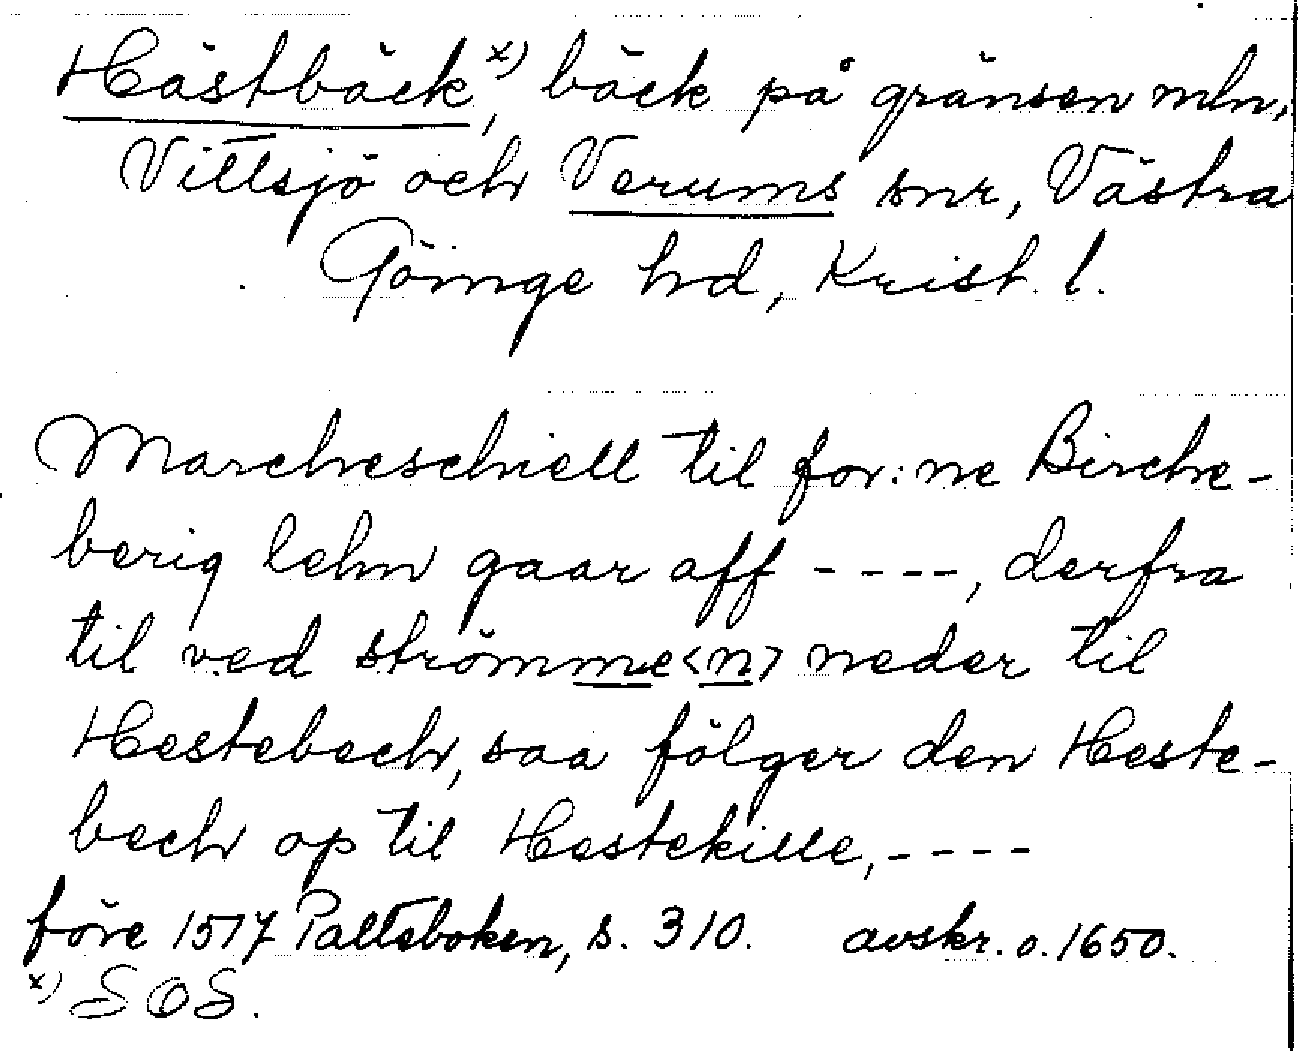 Hästbäck,x) bäck på gränsen mln.
Vittsjö och Verums snr, Västra
Göinge hd, Krist. l.
Marcheschiell til for:ne Birche-
berig lehn gaar aff ----, derfra
til ved strömme<n> neder til
Hestebech, saa fölger den Heste-
bech op til Hestekille, ----
före 1517 Paltsboken, s. 310. avskr. o. 1650.
x) SOS.